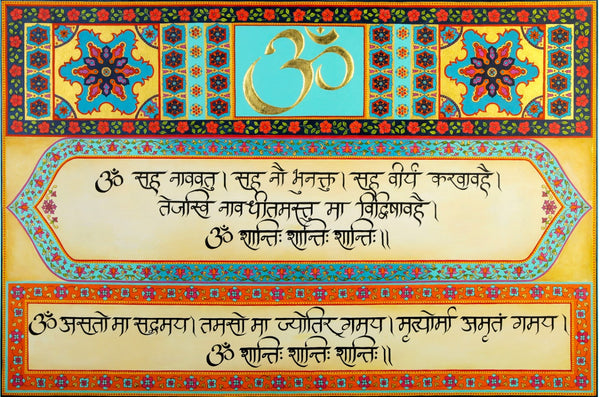 ॐ
ॐ सह नाववतु। सह नौ भुनक्तु। सह वीर्यं करवावहै।
तेजस्वि नावधीतमस्तु मा विद्विषावहै।
ॐ शान्तिः शान्तिः शान्तिः॥
ॐ असतो मा सद्गमय। तमसो मा ज्योतिर्गमय। मृत्योर्मा अमृतं गमय।
ॐ शान्तिः शान्तिः शान्तिः॥